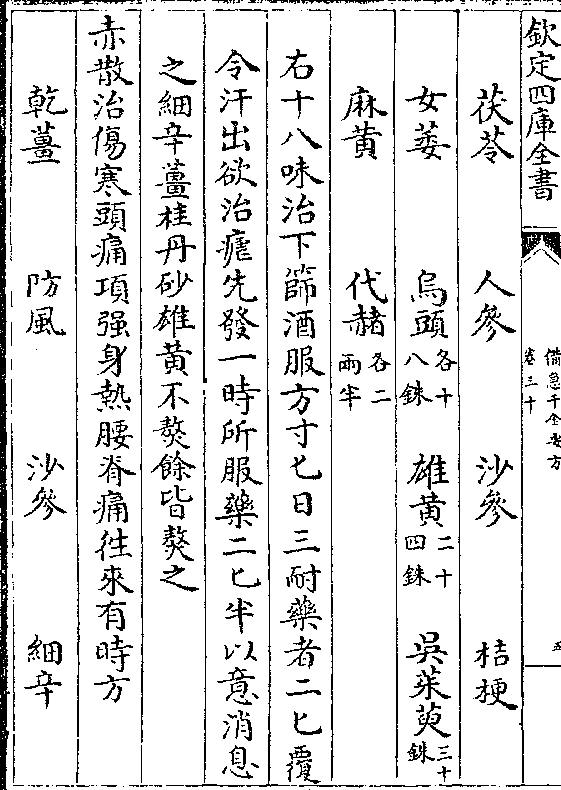 欽定四庫全書
備急千金要方
卷三十
五
茯苓 人參 沙參 桔梗
女萎 烏頭各十八銖 雄黄二十四銖 吳茱萸三十銖
麻黄 代赭各二兩半
右十八味治下篩酒服方寸匕日三耐藥者二匕覆
令汗出欲治瘧先發一時所服藥二匕半以意消息
之細辛薑桂丹砂雄黄不熬餘皆熬之
赤散治傷寒頭痛項强身熱腰脊痛徃來有時方
乾薑 防風 沙參 細辛